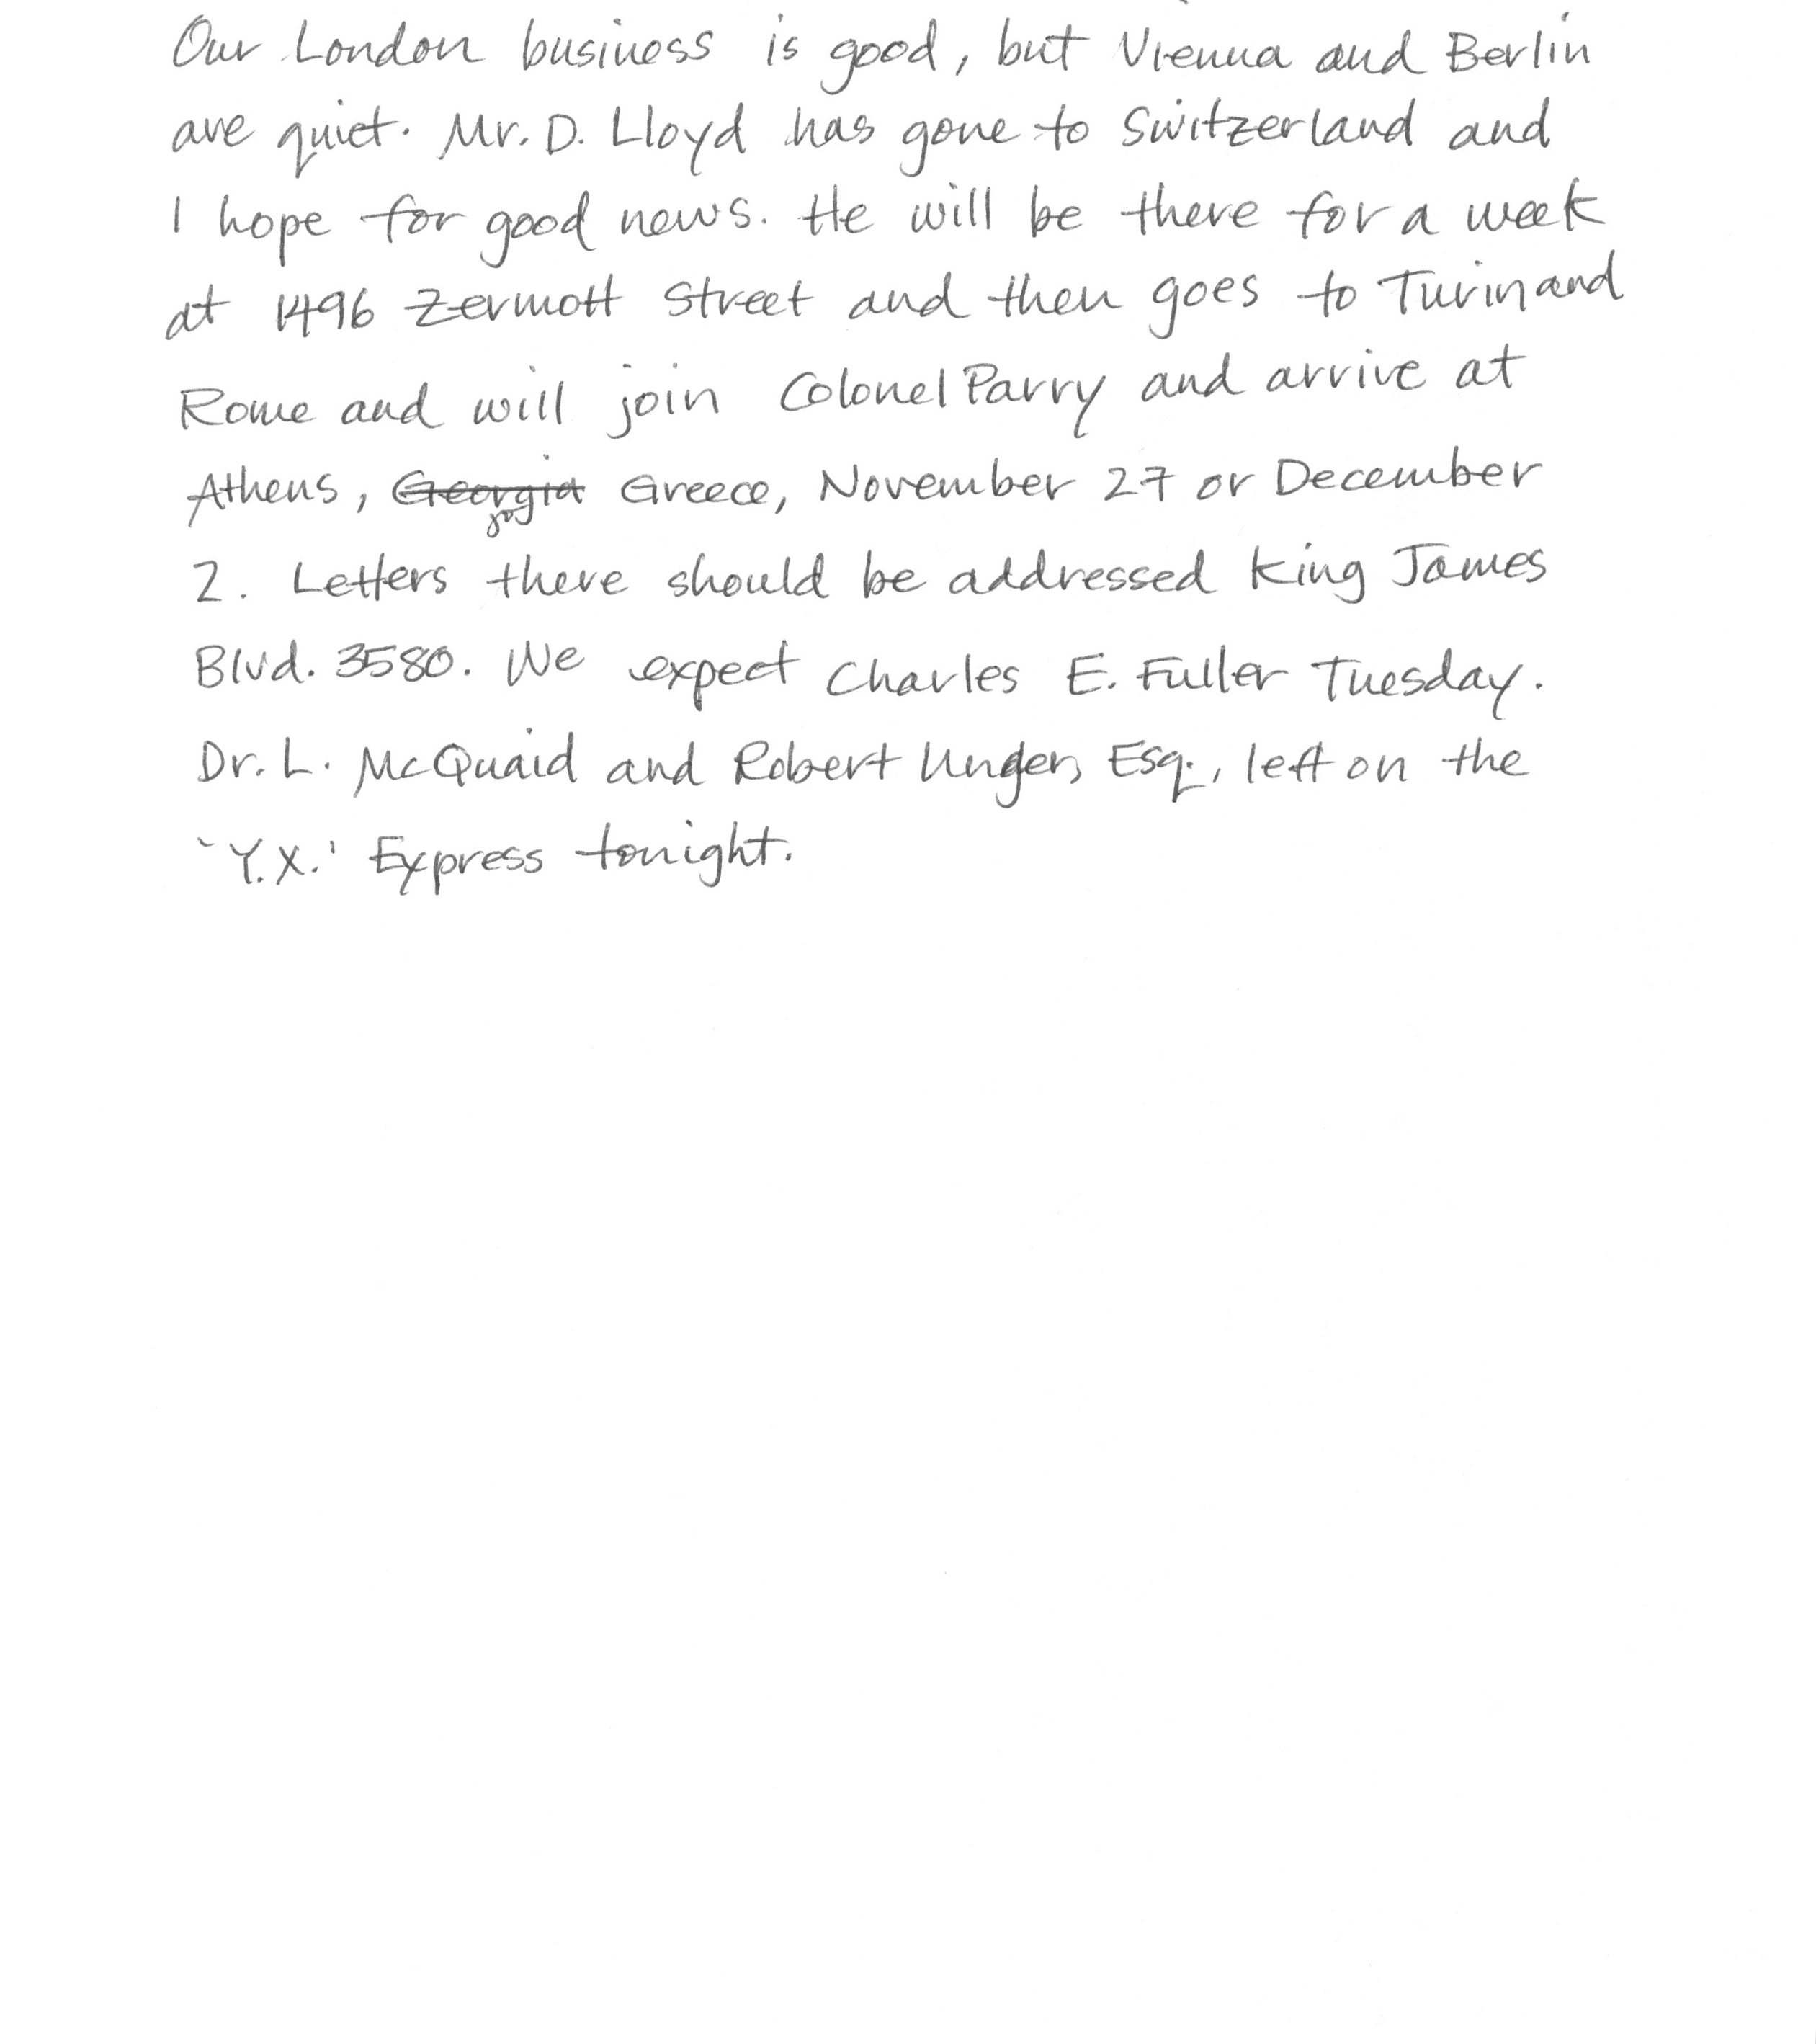 Our London business is good, but Vienna and Berlin
are quiet. Mr. D. Lloyd has gone to Switzerland and
I hope for good news. He will be there for a week
at 1496 Zermott Street and then goes to Turin and
Rome and will join Colonel Parry and arrive at
Athens, Georgia Greece, November 27 or December
2. Letters there should be addressed King James
Blvd. 3580. We expect Charles E. Fuller Tuesday.
Dr. L. McQuaid and Robert Unger, Esq., left on the
'Y.X.' Express tonight.